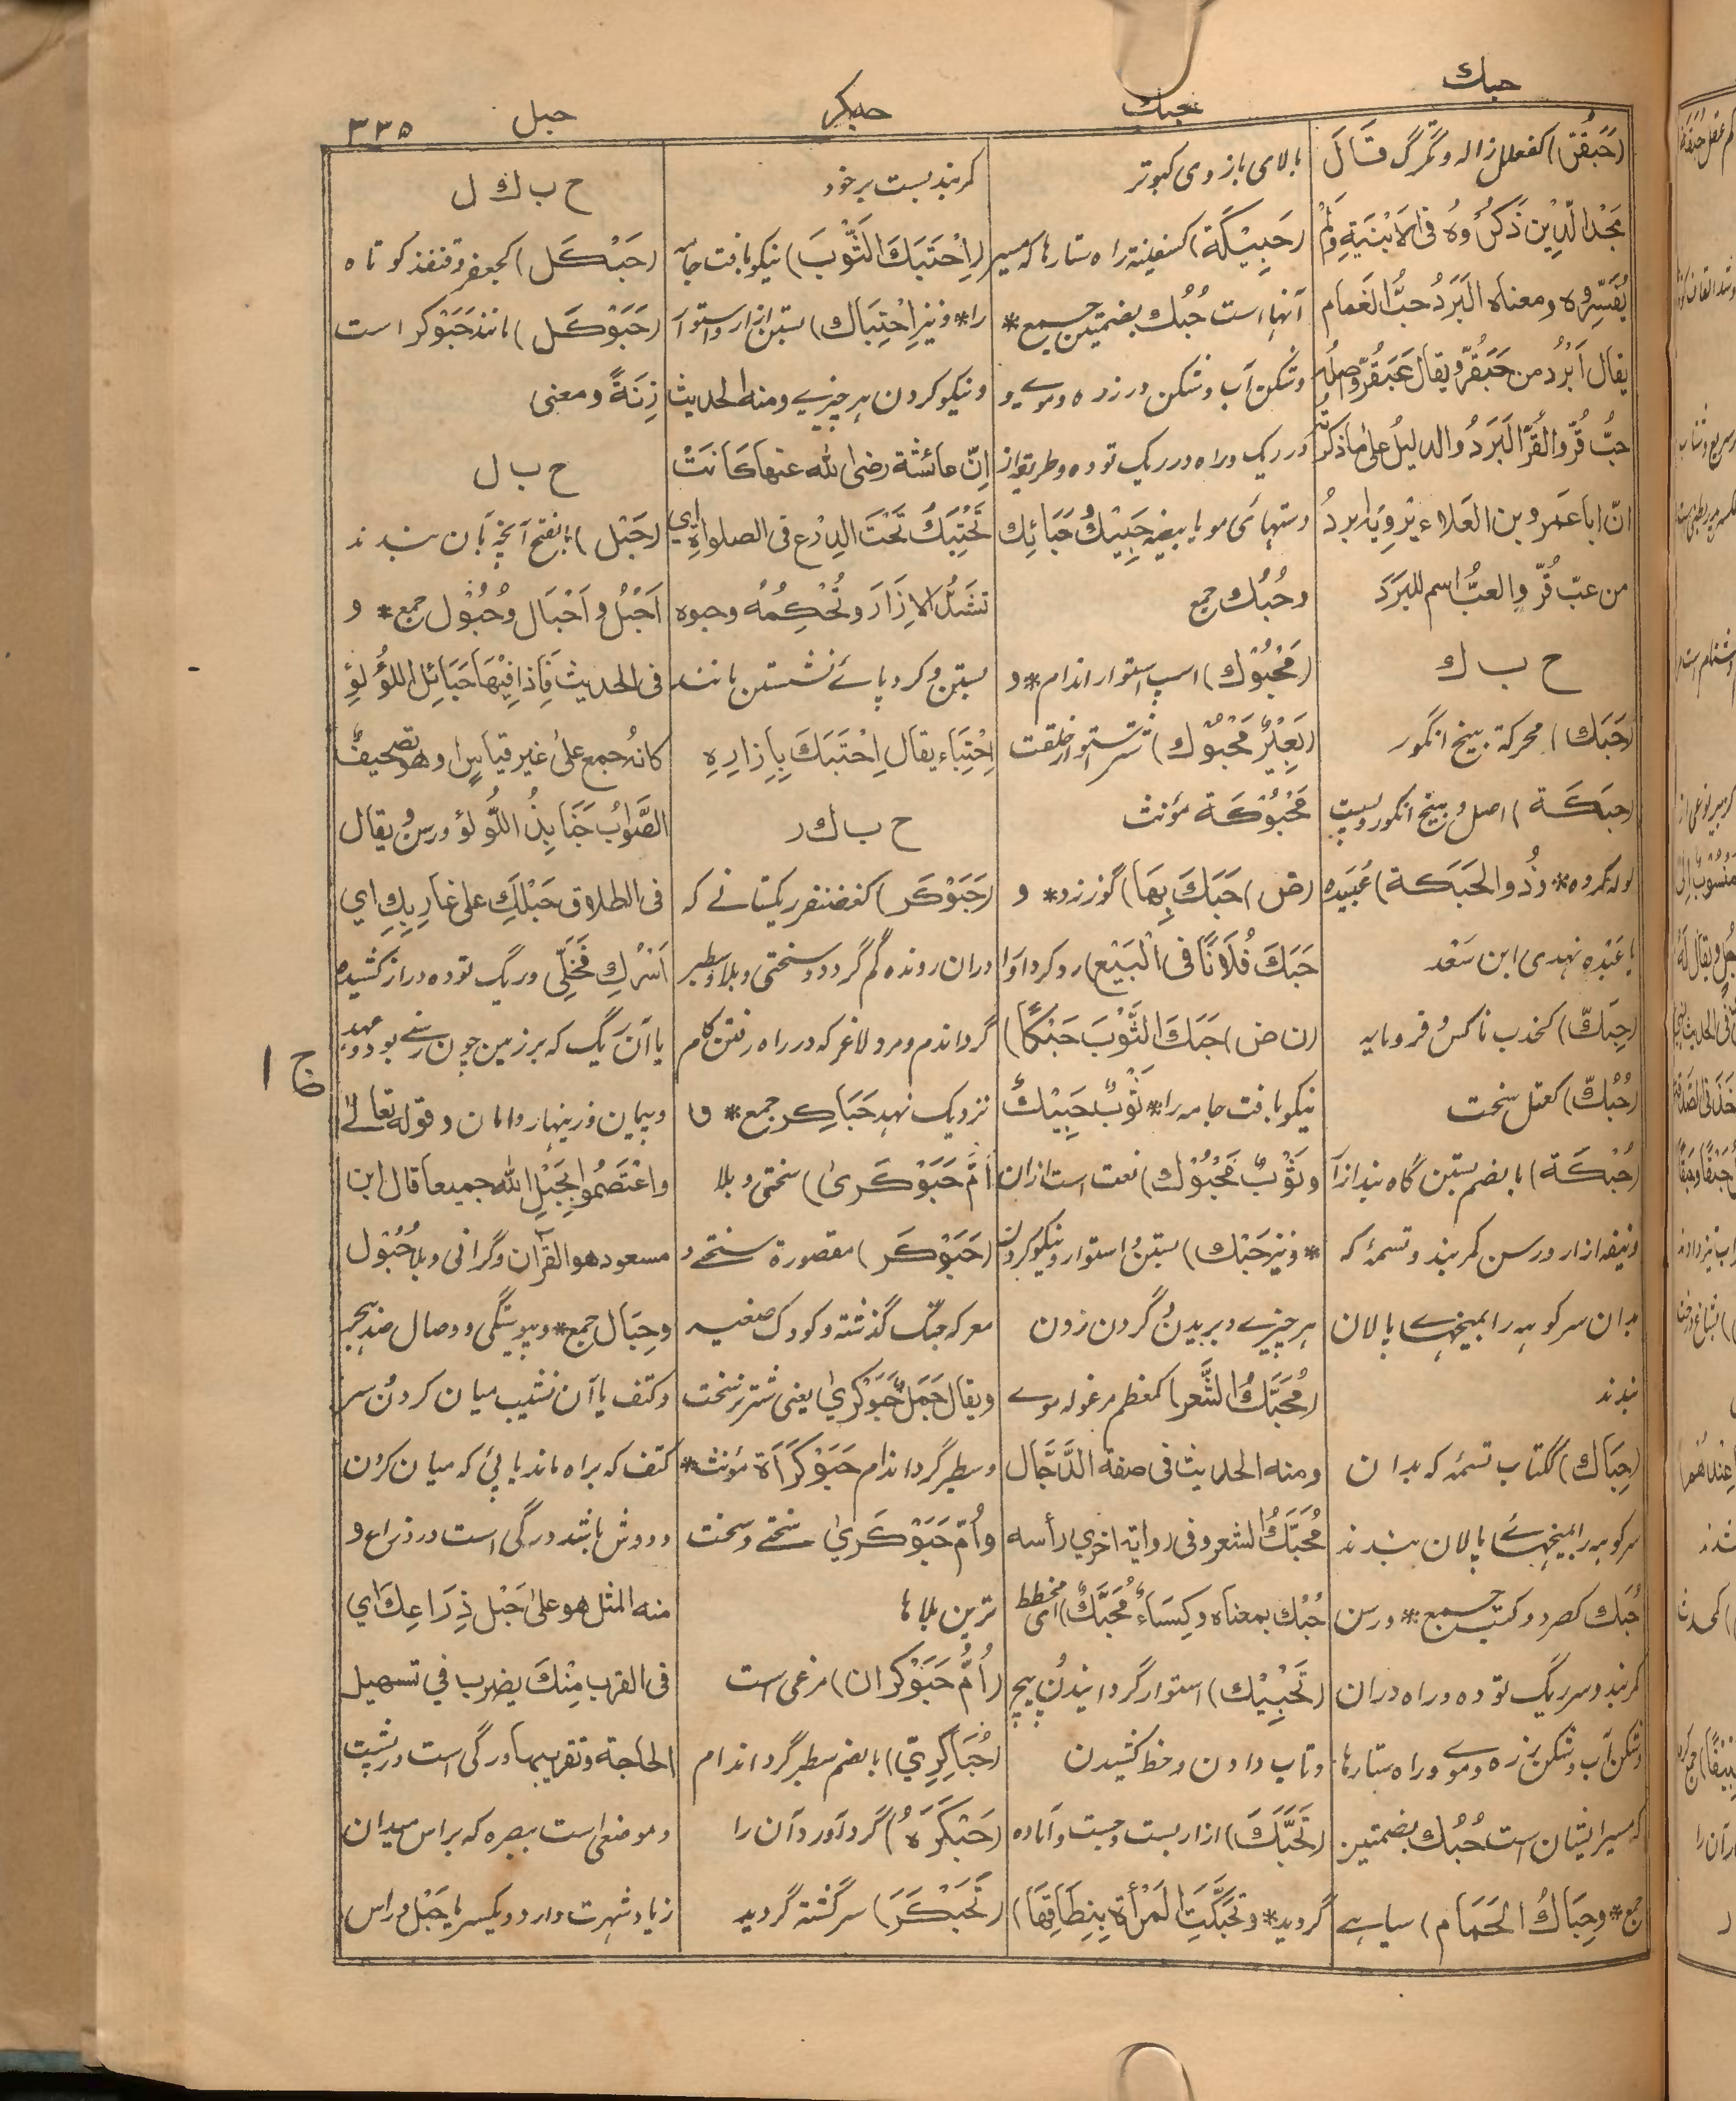 حبك
حبك
حبكر
حبل
۳۳۵
(حَبَقُرّ) كفعلل ژاله و تگرگ قَالَ
مَجْدُ الدِّيْن ذَكَرُوْهُ فى الاَبْنِيَةِ وَلَمْ
يُفَسِّرُوه ومعناه البَرَدُ حَبُّ الغَمام
يقال اَبْرَدُ من حَبَقُرّ ويقال عَبَقُرّ واصلُه
حَبُّ قُرٍّ والقُرُّ البَرَدُ والدليلُ على ماذكرتُه
انّ ابا عمرو بن العَلاء يَرْوِيْه ابردُ
من عبّ قُرٍّ والعبُّ اسم للبَرَدَ
ح ب ك
(حَبَك) محركة بيخ انگور
(حبَكَة) اصل و بيخ انگور و بست
لوله كمروه * وذُو الحَبَكَة) عُبَيده
يا عَبْده نهدى ابن سَعْد
(حِبَكّ) كخدب ناكس و فرومايه
(حُبُكّ) كعتل سخت
(حُبْكَة) بالضم بستن گاه بند ازار
و نيفه ازار و رسن كمربند و تسمهٔ كه
بدان سركوبه را بميخهاے پالان
بندند
(حِبَاك) ككتاب تسمه كه بدان
سركوبه را بميخهاۓ پالان بندند
حُبُك كصرد وكتب جمع * و رسن
كمربند و سر ريگ توده و راه دران
و شكن آب و شكن زره و موے و راه ستارها
كه مسير ايشان است حُبُك بضمتين
جمع * وحِبَاكُ الحَمَام) سياہے
بالاى بازوى كبوتر
(حَبِيْكَة) كسفينة راه ستارها كه مسير
آنها است حُبُك بضمتين جمع *
و شكن آب و شكن در زره و موے و
در ريگ و راه در ريگ توده و طريقه از
دستهاىٔ مو يا بيضه حَبِيْكُ حَبَائِك
و حُبُك جمع
(مَحْبُوْك) اسپ استوار اندام * و
(بَعِيْرٌ مَحْبُوْك) شتر استوار خلقت
مَحْبُوْكَة مؤنث
(ض) حَبَكَ بِهَا) گوز زد * و
حَبَكَ فُلَانًا فى الْبَيْع) رد كرد او را
(ن ض) حَبَكَ الثَّوْبَ حَبْكًا)
نيكو بافت جامه را * ثَوْبٌ حَبِيْكٌ
وثَوْبٌ مَحْبُوْك) نعت است ازان
* و نيز حَبْك) بستن و استوار و نيكو كردن
هر چيزے و بريدن و گردن زدن
(مُحَبَّكُ الشَّعر) كمعظم مرغوله موے
ومنه الحديث فى صفة الدَّجَّال
مُحَبَّكُ الشعر وفى رواية اخرى رأسه
حُبُك بمعناه وكِسَاءٌ مُحَبَّكٌ) اى مخطط
(تَحْبِيْك) استوار گردانيدن و پيچ
و تاب دادن و خط كشيدن
(تَحَبَّكَ) ازار بست و چست و آماده
گرديد * وتَحَبَّكَتِ المَرْأة بِنِطَاقِهَا)
كمربند بست بر خود
(اِحْتَبَكَ الثَّوْبَ) نيكو بافت جامه
را * و نيز اِحْتِبَاك) بستن ازار و استوار
و نيكو كردن هر چيزے ومنه الحديث
اِنّ عائشة رضى الله عنها كَانَتْ
تَحْتَبِكُ تَحْتَ الدِرْع فى الصلواة اى
تشدُّ الاِزَارَ و تُحْكِمُه و حبوه
بستن و گرد پاۓ نشستن مانند
اِحْتِبَاء يقال اِحْتَبَكَ بِاِزارِهِ
ح ب ك ر
(حَبَوْكَر) كغضنفر ريگستانے كه
دران رونده گم گردد و سختى و بلا و سطبر
گرد اندام و مرد لاغر كه در راه رفتن گام
نزديك نهد حَبَاكِر جمع * و
اُمّ حَبَوْكَرىٰ) سختى و بلا
(حَبَوْكَر) مقصورة سختے و
معركه جنگ گذشته و كودك صغير
ويقال جَمَلٌ حَبَوْكَرىٰ يعنى شتر نر سخت
و سطبر گرد اندام حَبَوْكَرَاة مؤنث *
و اُمّ حَبَوْكَرىٰ سختے و سخت
ترين بلاها
(اُمُّ حَبَوْكَران) مرغى است
(حُبَاكِرِيّ) بالضم سطبر گرد اندام
(حَبْكَرَهُ) گرد آورد آن را
(تَحَبْكَرَ) سرگشته گرديد
ح ب ك ل
(حَبْكَل) كجعفر و قنفذ كوتاه
(حَبَوْكَل) مانند حَبَوْكر است
زِنَةً و معنى
ح ب ل
(حَبْل) بالفتح آنچه بآن بندند
اَحْبُل و اَحْبَال و حُبُوْل جمع * و
فى الحديث فَاِذا فِيْهَا حَبَائِل اللؤلؤِ
كانه جمع على غير قياسٍ او هو تصحيفٌ
الصَّوابُ جَنَابِذُ اللُّولؤ و رسن و يقال
فى الطلاق حَبْلُكِ على غارِبِكِ اى
اَمْرُكِ مُخَلّىً و ريگ توده دراز كشيده
يا آن ريگ كه بر زمين چون رسنے بود و عهد
و پيمان و زينهار و امان و قوله تعالىٰ
واعْتَصِمُوا بِحَبْلِ الله جميعا قال ابن
مسعود هو القرآن و گرانى و بلا حُبُوْل
و حِبَال جمع * و پيوستگى و وصال ضد هجر
و كتف يا آن نشيب ميان گردن و سر
كتف كه براه ماند يا پىٔ كه ميان گردن
و دوش باشد و رگى است در ذراع و
منه المثل هو علىٰ حَبْل ذِرَاعِكَ اى
فى القرب مِنْكَ يضرب فى تسهيل
الحاجة و تقريبها و رگى است در پشت
و موضعى است ببصره كه براس ميدان
زياد شهرت دارد و يكسر يا حَبْل و راس
ج ١